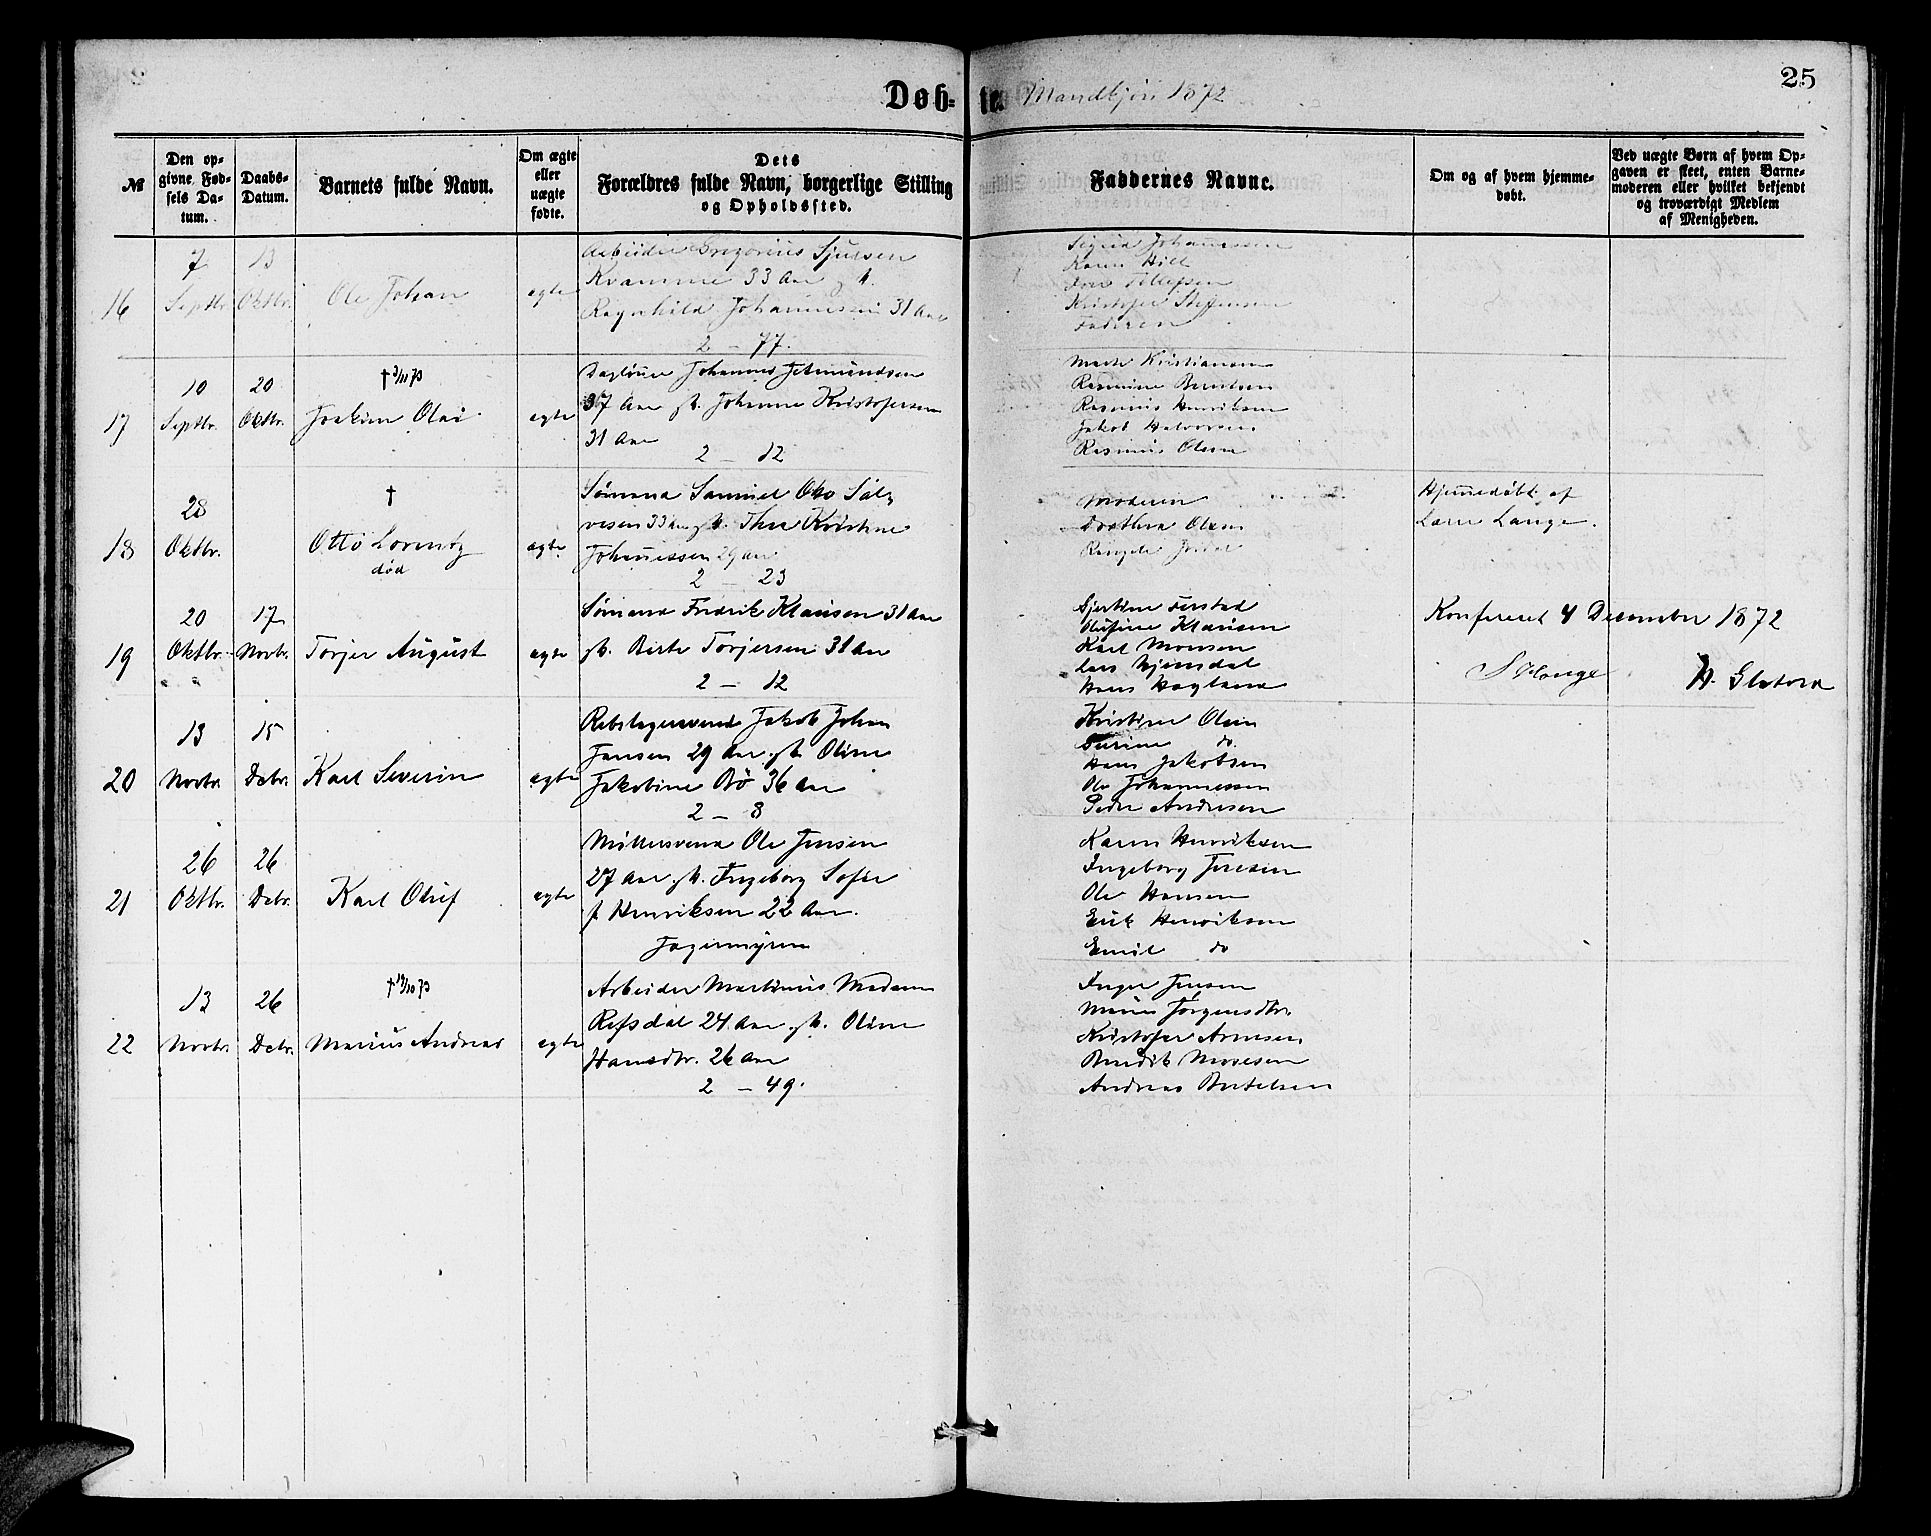 25
Døb-te. Mandkjøn 1872
№
Den opgivne Fødsels Datum.
Daabs-Datum.
Barnets fulde Navn.
Om ægte eller uægte fødte.
Dets
Forældres fulde Navn, borgerlige Stilling
og Opholdssted.
Faddernes Navne.
Om og af hvem hjemmedøbt.
Ved uægte Børn af hvem Opgaven er skeet, enten Barnemoderen eller hvilket bekjendt og troværdigt Medlem af Menigheden.
16
7 Septbr.
13 Oktbr.
Ole Johan
egte
Arbeider Gregorius Sjursen
Kvamme 33 Aar &
Ragnhild Johannesen 31 Aar
2 – 77.
Sigrid Johannessen
Karen Hill
Tollefsen
Kristofer Steffensen
Faderen
17
10 Septbr.
20 Oktbr.
†
Joakim Olai
egte
Dagløner Johannes Jetmundsen
37 Aar gt. Johanne Kristofersen
31 Aar
2 – 12
Marte Kristiansen
Rasmine Berntsen
Rasmus Henriksen
Jakob Halvorsen
Rasmus Olsen
18
28 Oktbr.
†
Otto Lorentz
død
egte
Sømand Samuel Otto Sal-
vesen 33 Aar gt. Thea Kristine
Johannessen 29 Aar
2 – 23
Moderen
Dorthea Olsen
Hjemmedøbt af
Lærer Lange.
19
20 Oktbr.
17 Novbr.
Torjer August
egte
Sømand Fredrik Klausen 31 Aar
gt. Berte Torjersen 31 Aar
2 – 12
Gjertine
Olufine Klausen
Karl Monsen
Lars
Hans Hagland
Konfereret 4 December 1872
20
13 Novbr.
15 Debr.
Karl Severin
egte
Rebslagersvend Jakob Johan
Jansen 29 Aar gt. Oline
Jakobine Bø 36 Aar
2 – 8
Kristine Olsen
do
Hans Jakobsen
Ole Johannessen
Peder Andersen
21
26 Oktbr.
26 Debr.
Karl Oluf
egte
Møllersvend Ole Jensen
27 Aar gt. Ingeborg Sofie
f Henriksen 22 Aar.
Karen Henriksen
Ingeborg Jensen
Ole Hansen
Erik Henriksen
Emil do
22
13 Novbr.
26 Debr.
†
Marius Andreas
egte
Arbeider Martinus Madsen
Refsdal 24 Aar gt. Oline
Hansdtr. 26 Aar
2 – 49.
Inger Jensen
Jørgensdtr.
Kristofer Arnesen
Bendik Mosesen
Andreas Bertelsen